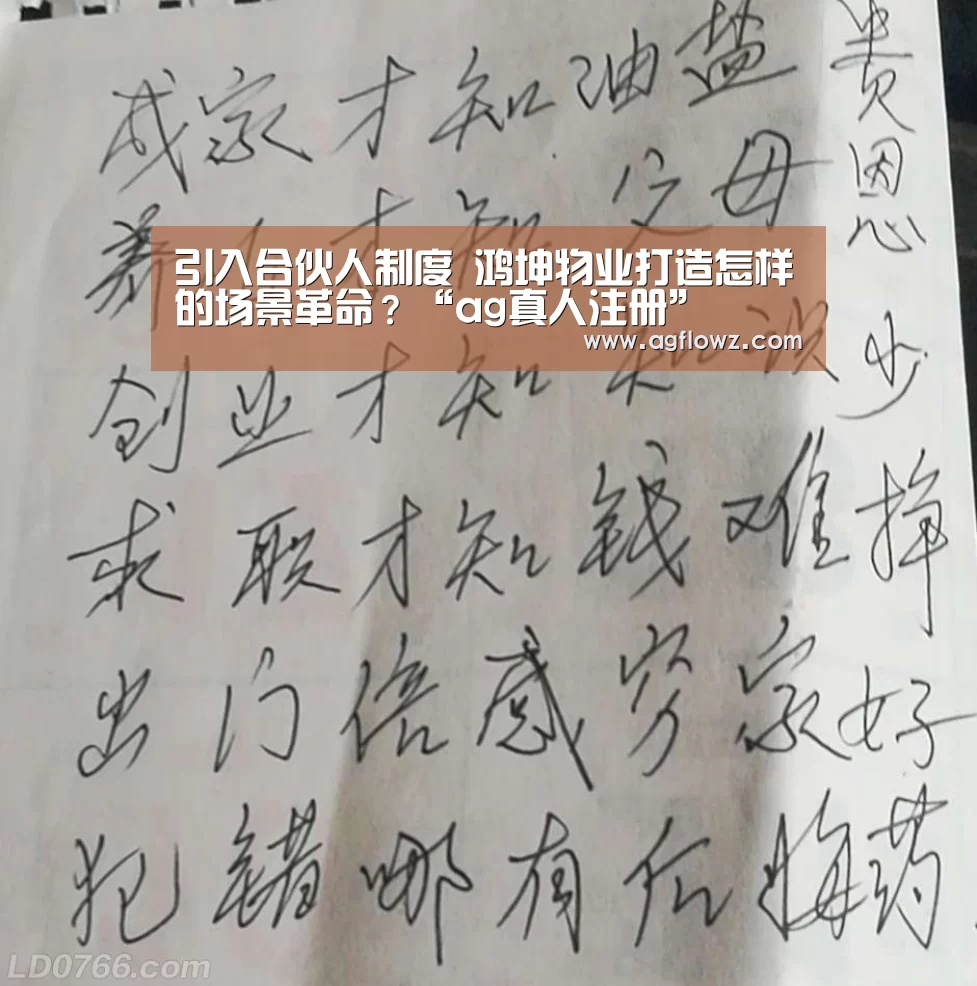 成家才知油盐贵
养 才知父母恩
引入合伙人制度 鸿坤物业打造怎样
的场景革命？“ag真人注册”
www.agflowz.com
创业才知知识少
求职才知钱难挣
出门倍感穷家好
犯错哪有后悔药
LD0766.com